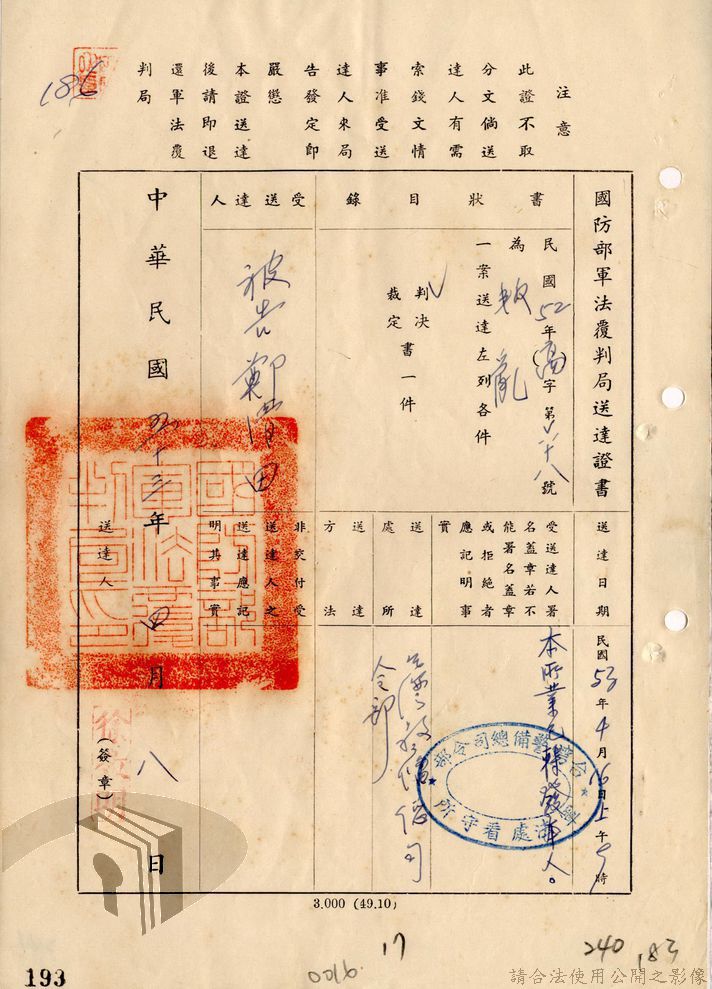 186
注意
此證不取
分文倘送
達人有需
索錢文情
事准受送
達人來局
告發定即
嚴懲
本證送達
後請即退
還軍法覆
判局
國防部軍法覆判局送達證書
書狀目錄
民國52年(高)字第 號
為叛亂
一案送達左列各件
判決
裁定書一件
受送達人
被告鄭 田
送達日期
民國53年4月16日上午9時
受送達人署
名蓋章若不
能署名蓋章
或拒絕者
應記明事
實
本所業已轉發本人。
台灣警備總司令部
處看守所
送達處所
台灣警備總司
令部
送達方法
非交付受
送達人之
送達應記
明其事實
中華民國五十三年四月八日
送達人
(簽章)
國防部軍法覆判局印
3.000 (49.10)
17
0016.
240
183
193
請合法使用公開之影像